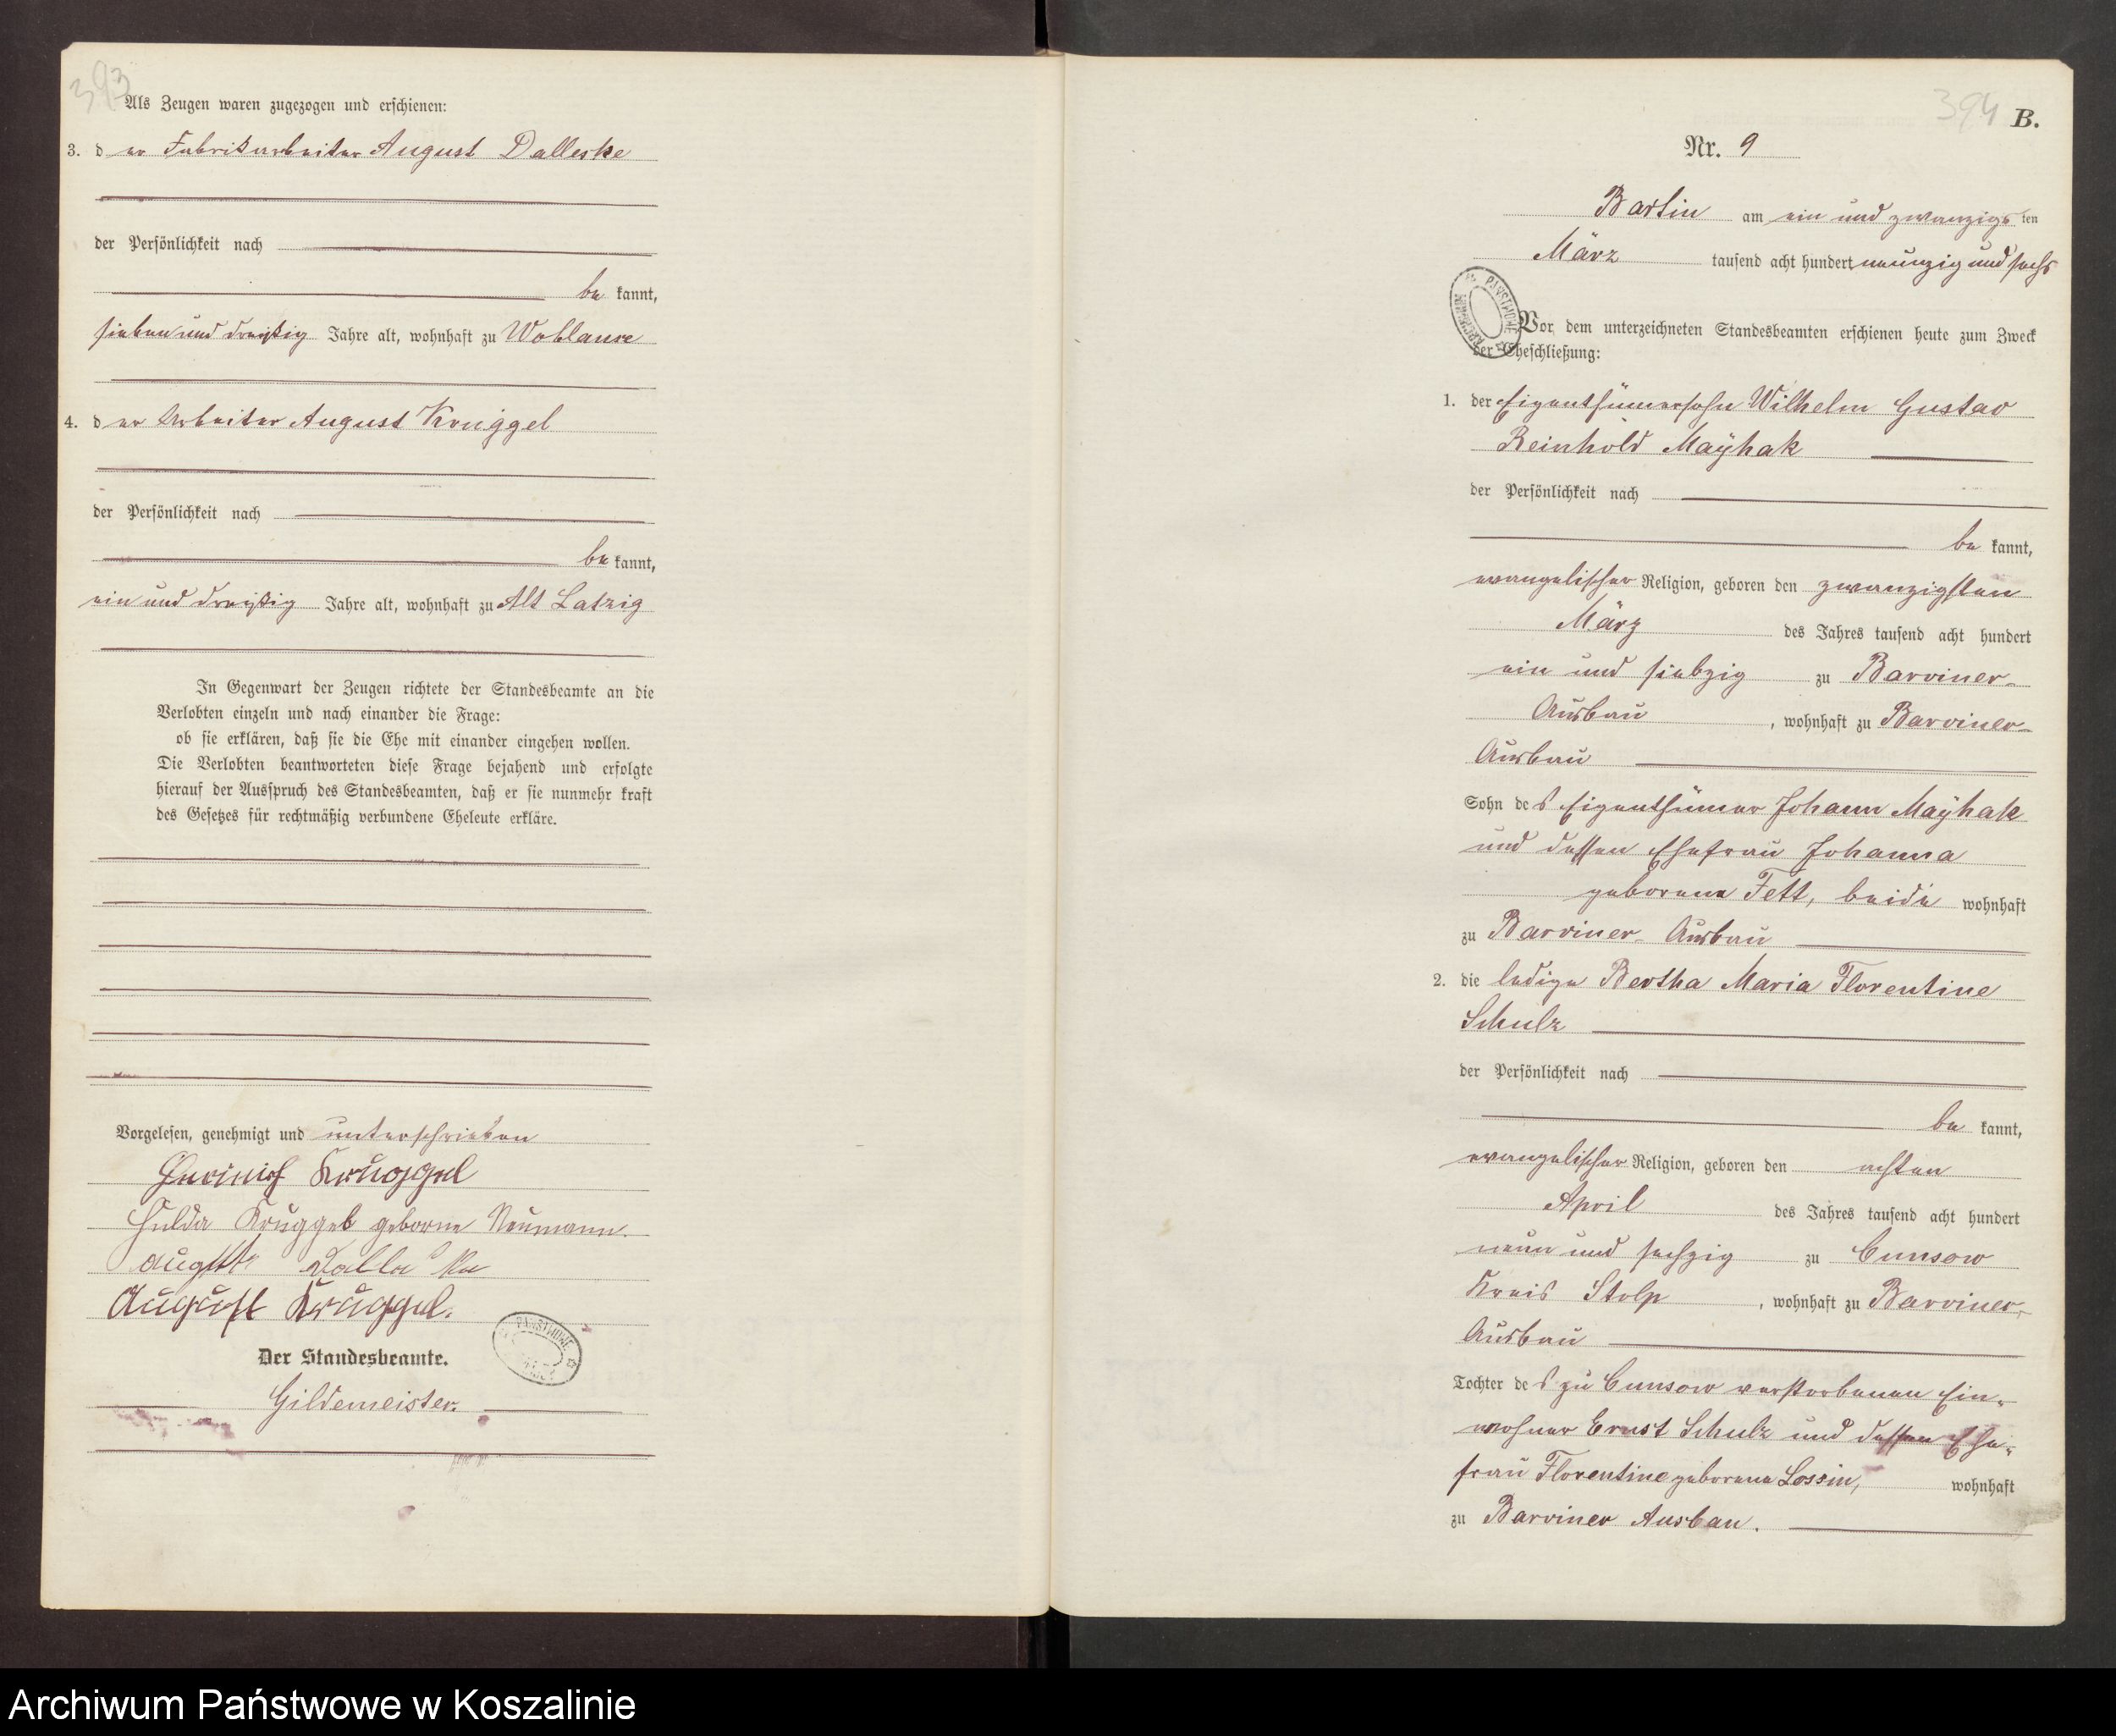 393
Als Zeugen waren zugezogen und erschienen:
3. der Fabrikarbeiter August Dalleske
der Persönlichkeit nach
bekannt,
sieben und dreißig Jahre alt, wohnhaft zu Woblanse
4. der Arbeiter August Krüggel
der Persönlichkeit nach
bekannt,
ein und dreißig Jahre alt, wohnhaft zu Alt Latzig
In Gegenwart der Zeugen richtete der Standesbeamte an die
Verlobten einzeln und nach einander die Frage:
ob sie erklären, daß sie die Ehe mit einander eingehen wollen.
Die Verlobten beantworteten diese Frage bejahend und erfolgte
hierauf der Ausspruch des Standesbeamten, daß er sie nunmehr kraft
des Gesetzes für rechtmäßig verbundene Eheleute erkläre.
Vorgelesen, genehmigt und unterschrieben
Heinrich Krüggel
Hulda Krüggel geborne Neumann.
August
August Krüggel.
PAŃSTWOWE
Der Standesbeamte.
Gildemeister.
394 B.
Nr. 9
Bartin am ein und zwanzigsten
März tausend acht hundert neunzig und sechs
PAŃSTWOWE
Vor dem unterzeichneten Standesbeamten erschienen heute zum Zweck
der Eheschließung:
1. der Eigenthümersohn Wilhelm Gustav
Reinhold Maÿhak
der Persönlichkeit nach
bekannt,
evangelischer Religion, geboren den zwanzigsten
März des Jahres tausend acht hundert
ein und siebzig zu Barviner-
Ausbau, wohnhaft zu Barviner-
Ausbau
Sohn des Eigenthümer Johann Maÿhak
und dessen Ehefrau Johanna
geborene Fett, beide wohnhaft
zu Barviner-Ausbau
2. die ledige Bertha Maria Florentine
Schulz
der Persönlichkeit nach
bekannt,
evangelischer Religion, geboren den achten
April des Jahres tausend acht hundert
neun und sechzig zu Cunsow
Kreis Stolp, wohnhaft zu Barviner-
Ausbau
Tochter des zu Cunsow verstorbenen Ein-
wohner Ernst Schulz und dessen Ehe-
frau Florentine geborene Lossin, wohnhaft
zu Barviner Ausbau.
Archiwum Państwowe w Koszalinie